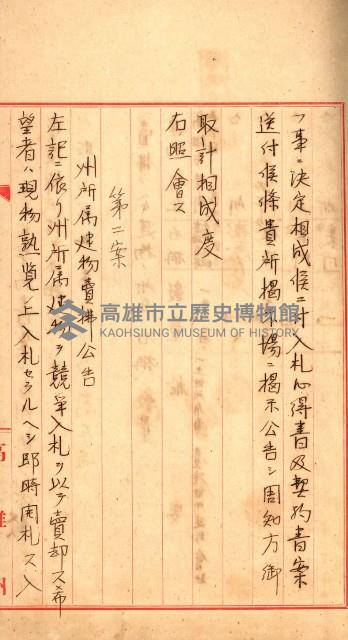 ノ事ニ決定相成候ニ付入札心得書及契約書案
送付候條貴所揭示場ニ揭示公告シ周知方御
取計相成度
右照會ス
第二案
州所属建物賣拂公告
左記ニ依リ州所属建物ヲ競爭入札ヲ以テ賣却ス希
望者ハ現物熟覽ノ上入札セラルヘシ即時開札ス入
高雄州
高雄市立歷史博物館
KAOHSIUNG MUSEUM OF HISTORY